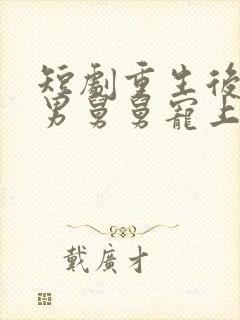 短劇重生後
男舅舅寵上
戴廣才